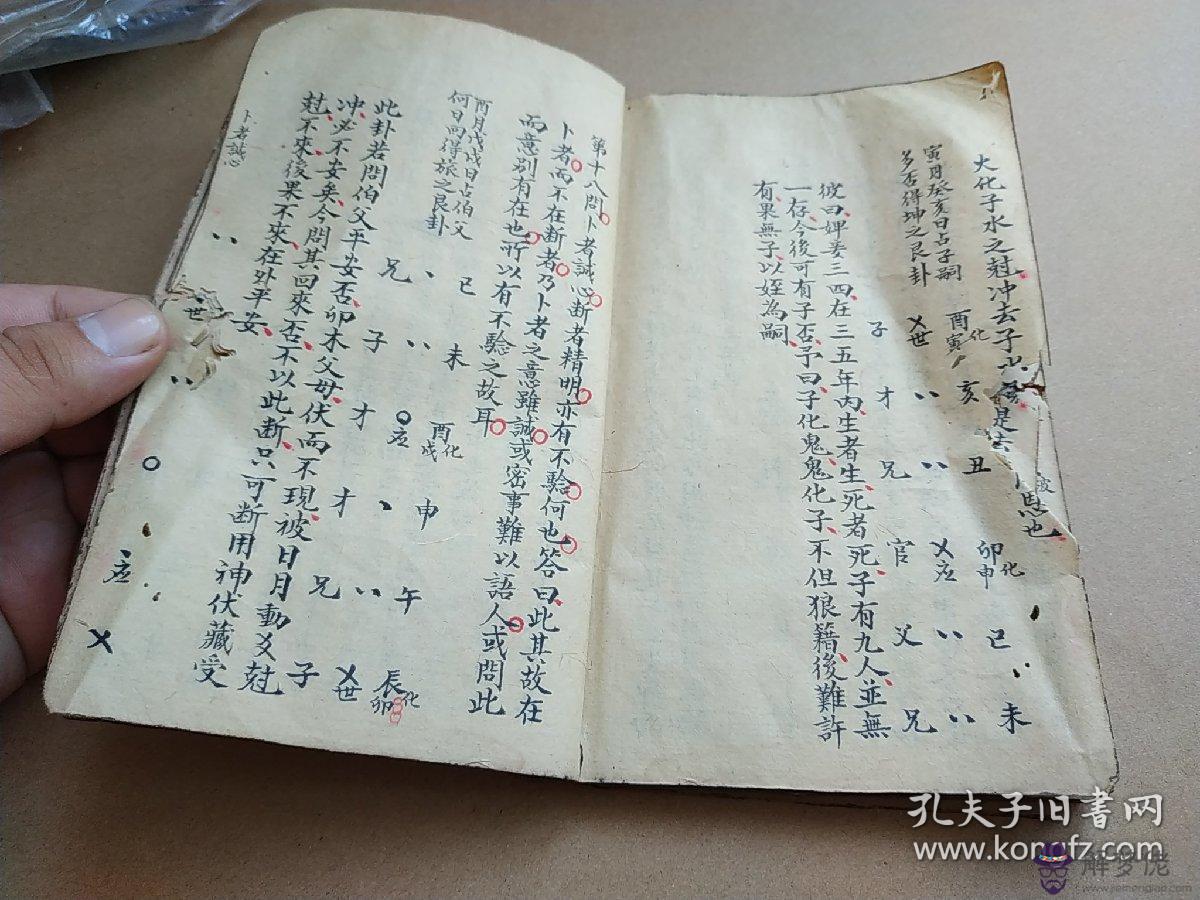 大化子水之尅冲去子水
是去
恩也
寅月癸亥日占子嗣
多否得坤之艮卦
子 父世 酉化寅
才 亥
兄 丑
官 父应 卯化申
父 巳
兄 未
彼曰婢妾三四在三五年内生者生死者死子有九人並無
一存今後可有子否予曰子化鬼鬼化子不但狼籍後難許
有果無子以姪為嗣
第十八問卜者誠心断者精明亦有不騐何也答曰此其故在
卜者而不在断者乃卜者之意雖誠或密事難以語人或問此
而意别有在也所以有不驗之故耳
酉月戊戌日占伯父
何日而得旅之艮卦
兄 巳
子 未
才 应 酉化戌
才 申
兄 午
子 世 辰化卯
此卦若問伯父平安否卯木父母伏而不現被日月動爻尅
冲必不安矣今問其回來否不以此断只可断用神伏藏受
尅不來後果不來在外平安
卜者誠心
世
应
孔夫子旧书网
www.kongfz.com
解梦佬
www.jiemenglao.com